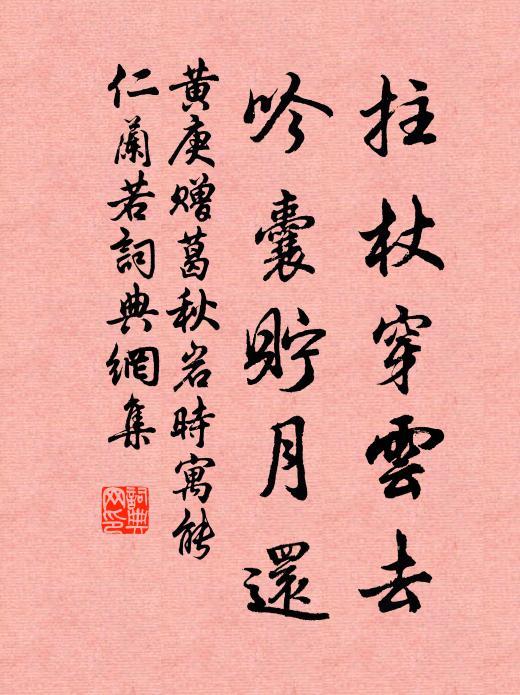 拄杖穿雲去
吟囊貯月還
黄庚贈葛秋岩時寓能
仁蘭若詞典網集
詞典
网印